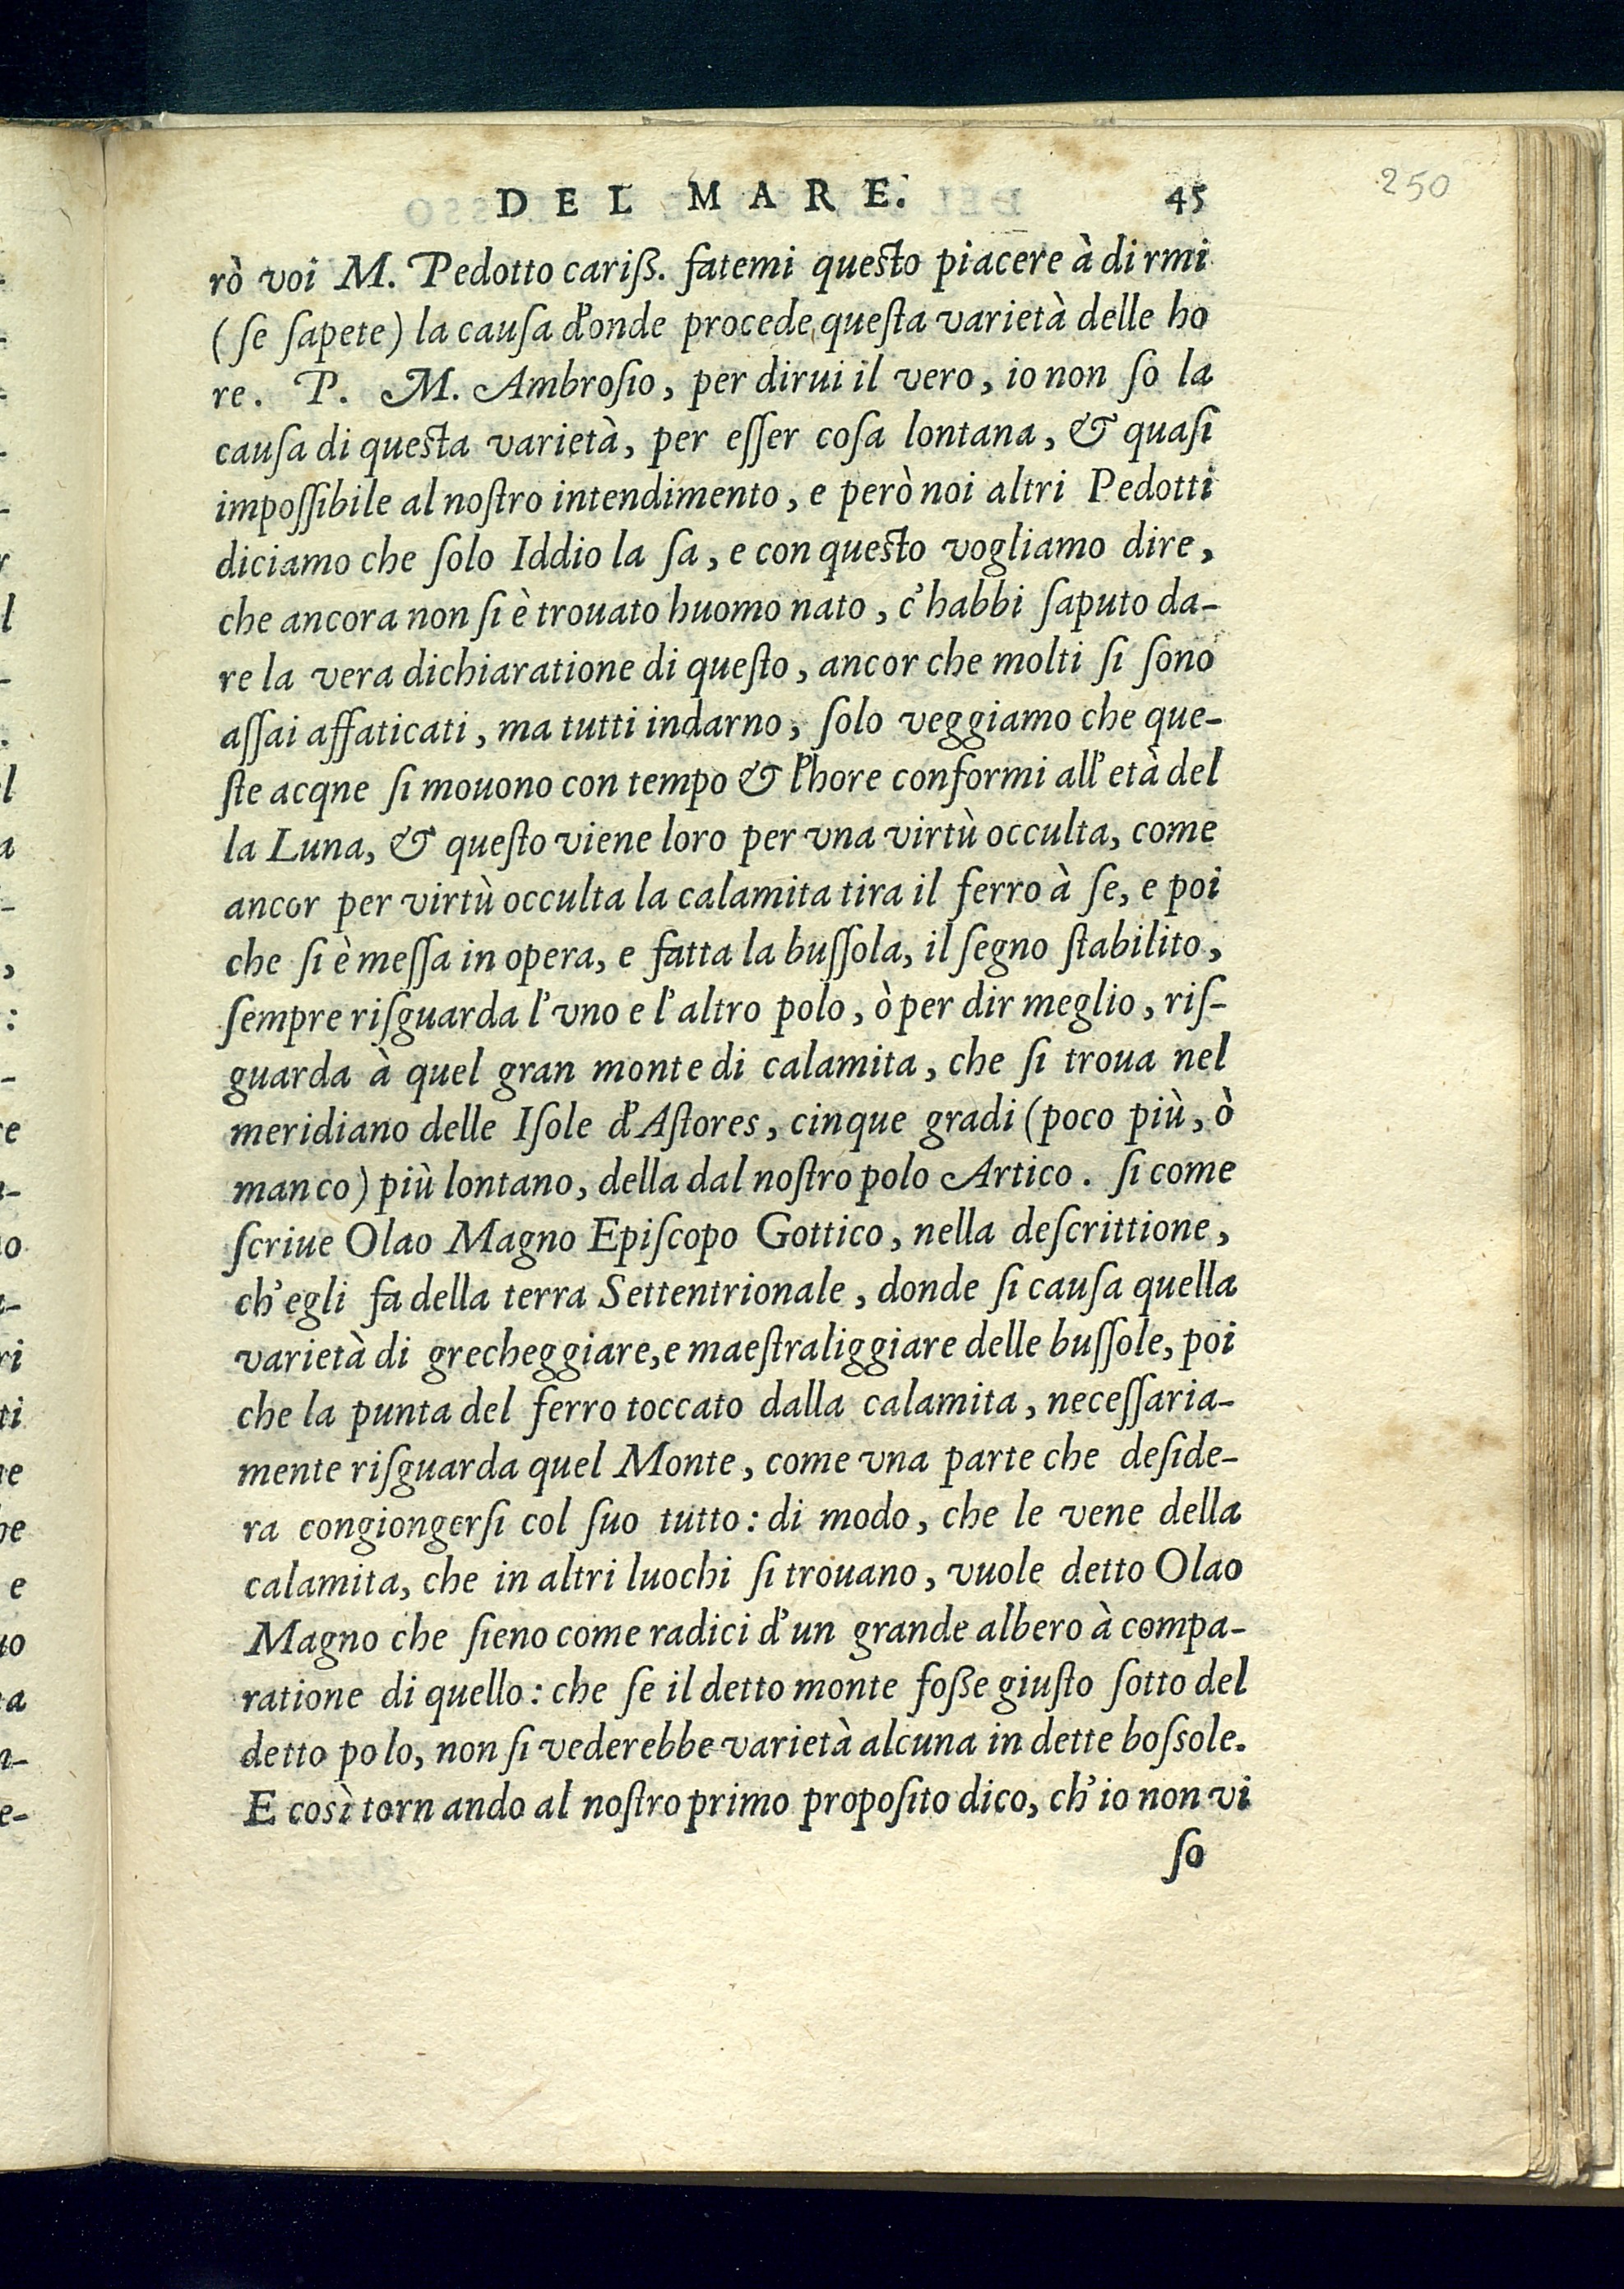 DEL MARE. 45
250
rò voi M. Pedotto cariß. fatemi questo piacere à dirmi
(ſe ſapete) la cauſa d'onde procede queſta varietà delle ho
re. P. M. Ambroſio, per dirui il vero, io non ſo la
cauſa di questa varietà, per eſſer coſa lontana, & quaſi
impoſſibile al noſtro intendimento, e però noi altri Pedotti
diciamo che ſolo Iddio la ſa, e con questo vogliamo dire,
che ancora non ſi è trouato huomo nato, c'habbi ſaputo da-
re la vera dichiaratione di queſto, ancor che molti ſi ſono
aſſai affaticati, ma tutti indarno, ſolo veggiamo che que-
ſte acqne ſi mouono con tempo & l'hore conformi all'età del
la Luna, & queſto viene loro per vna virtù occulta, come
ancor per virtù occulta la calamita tira il ferro à ſe, e poi
che ſi è meſſa in opera, e fatta la buſſola, il ſegno ſtabilito,
ſempre riſguarda l'vno e l'altro polo, ò per dir meglio, riſ-
guarda à quel gran monte di calamita, che ſi troua nel
meridiano delle Iſole d'Aſtores, cinque gradi (poco più, ò
manco) più lontano, della dal noſtro polo Artico. ſi come
ſcriue Olao Magno Epiſcopo Gottico, nella deſcrittione,
ch'egli fa della terra Settentrionale, donde ſi cauſa quella
varietà di grecheggiare, e maeſtraliggiare delle buſſole, poi
che la punta del ferro toccato dalla calamita, neceſſaria-
mente riſguarda quel Monte, come vna parte che deſide-
ra congiongerſi col ſuo tutto: di modo, che le vene della
calamita, che in altri luochi ſi trouano, vuole detto Olao
Magno che ſieno come radici d'un grande albero à compa-
ratione di quello: che ſe il detto monte foße giuſto ſotto del
detto polo, non ſi vederebbe varietà alcuna in dette boſsole.
E così torn ando al noſtro primo propoſito dico, ch'io non vi
ſo